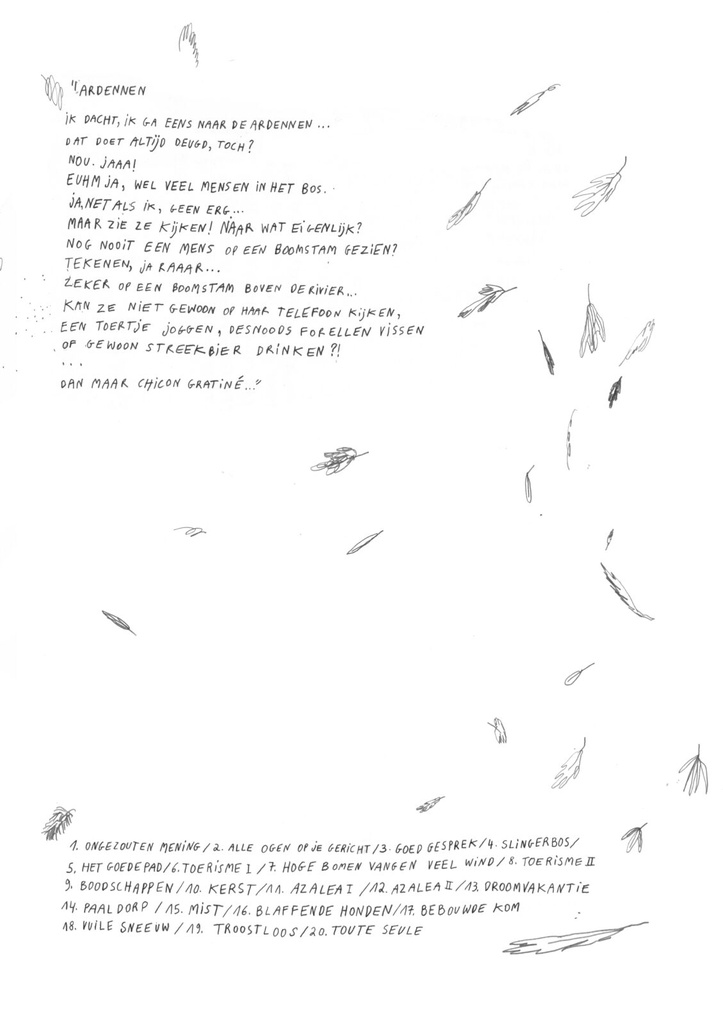 "ARDENNEN
IK DACHT, IK GA EENS NAAR DE ARDENNEN ...
DAT DOET ALTIJD DEUGD, TOCH?
NOU. JAAA!
EUHM JA, WEL VEEL MENSEN IN HET BOS.
JA, NET ALS IK, GEEN ERG...
MAAR ZIE ZE KIJKEN! NAAR WAT EIGENLIJK?
NOG NOOIT EEN MENS OP EEN BOOMSTAM GEZIEN?
TEKENEN, JA RAAAR...
ZEKER OP EEN BOOMSTAM BOVEN DE RIVIER...
KAN ZE NIET GEWOON OP HAAR TELEFOON KIJKEN,
EEN TOERTJE JOGGEN, DESNOODS FORELLEN VISSEN
OF GEWOON STREEKBIER DRINKEN?!
...
DAN MAAR CHICON GRATINÉ..."
1. ONGEZOUTEN MENING / 2. ALLE OGEN OP JE GERICHT / 3. GOED GESPREK / 4. SLINGERBOS /
5. HET GOEDE PAD / 6. TOERISME I / 7. HOGE BOMEN VANGEN VEEL WIND / 8. TOERISME II
9. BOODSCHAPPEN / 10. KERST / 11. AZALEA I / 12. AZALEA II / 13. DROOMVAKANTIE
14. PAALDORP / 15. MIST / 16. BLAFFENDE HONDEN / 17. BEBOUWDE KOM
18. VUILE SNEEUW / 19. TROOSTLOOS / 20. TOUTE SEULE